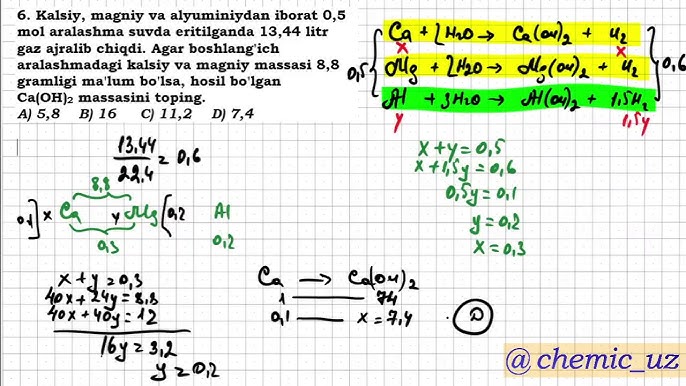 6. Kalsiy, magniy va alyuminiydan iborat 0,5
mol aralashma suvda eritilganda 13,44 litr
gaz ajralib chiqdi. Agar boshlang'ich
aralashmadagi kalsiy va magniy massasi 8,8
gramligi ma'lum bo'lsa, hosil bo'lgan
Ca(OH)₂ massasini toping.
A) 5,8 B) 16 C) 11,2 D) 7,4
Ca + 2H₂O → Ca(OH)₂ + H₂
x x
0,5 Mg + 2H₂O → Mg(OH)₂ + H₂ 0,6
Al + 3H₂O → Al(OH)₂ + 1,5H₂
y 1,5y
13,44
22,4 = 0,6
8,8
0,1 x Ca y Mg 0,2 Al
0,3 0,2
x + y = 0,5
x + 1,5y = 0,6
0,5y = 0,1
y = 0,2
x = 0,3
x + y = 0,3
40x + 24y = 8,8
40x + 40y = 12
16y = 3,2
y = 0,2
Ca → Ca(OH)₂
1 74
0,1 x = 7,4
D
@chemic_uz